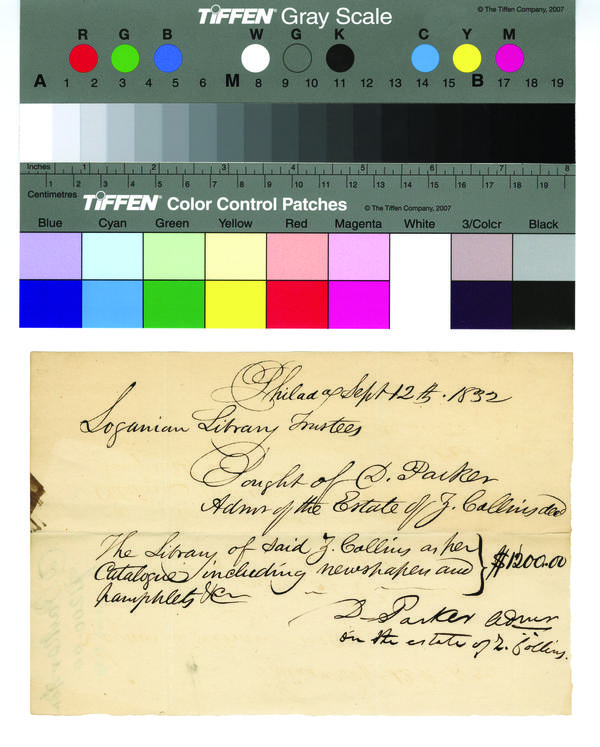 TIFFEN® Gray Scale
© The Tiffen Company, 2007
R G B W G K C Y M
A 1 2 3 4 5 6 M 8 9 10 11 12 13 14 15 B 17 18 19
Inches 1 2 3 4 5 6 7 8
Centimetres 1 2 3 4 5 6 7 8 9 10 11 12 13 14 15 16 17 18 19
TIFFEN® Color Control Patches
© The Tiffen Company, 2007
Blue Cyan Green Yellow Red Magenta White 3/Color Black
Philada Sept 12th. 1832
Loganian Library Trustees
Bought of D. Parker
Admr of the Estate of Z. Collins decd
The Library of said Z. Collins as per
Catalogue including newspapers and
pamphlets &c
$1200.00
D. Parker admr
on the estate of Z. Collins.